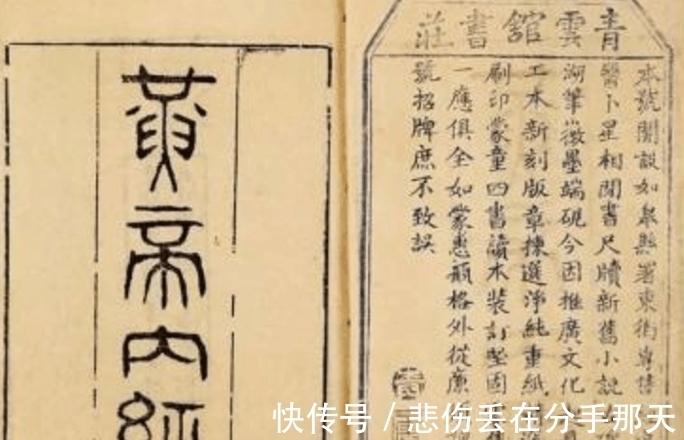 青雲舘書莊
本號開設如臯縣署東街專售
醫卜星相閒書尺牘新舊小說
湖筆徽墨端硯今因推廣文化
工本新刻版章揀選淨純重紙
刷印蒙童四書讀本裝訂堅固
一應俱全如蒙惠顧格外從廉
號招牌庶不致誤
黃帝內經
快传号 / 悲伤丢在分手那天